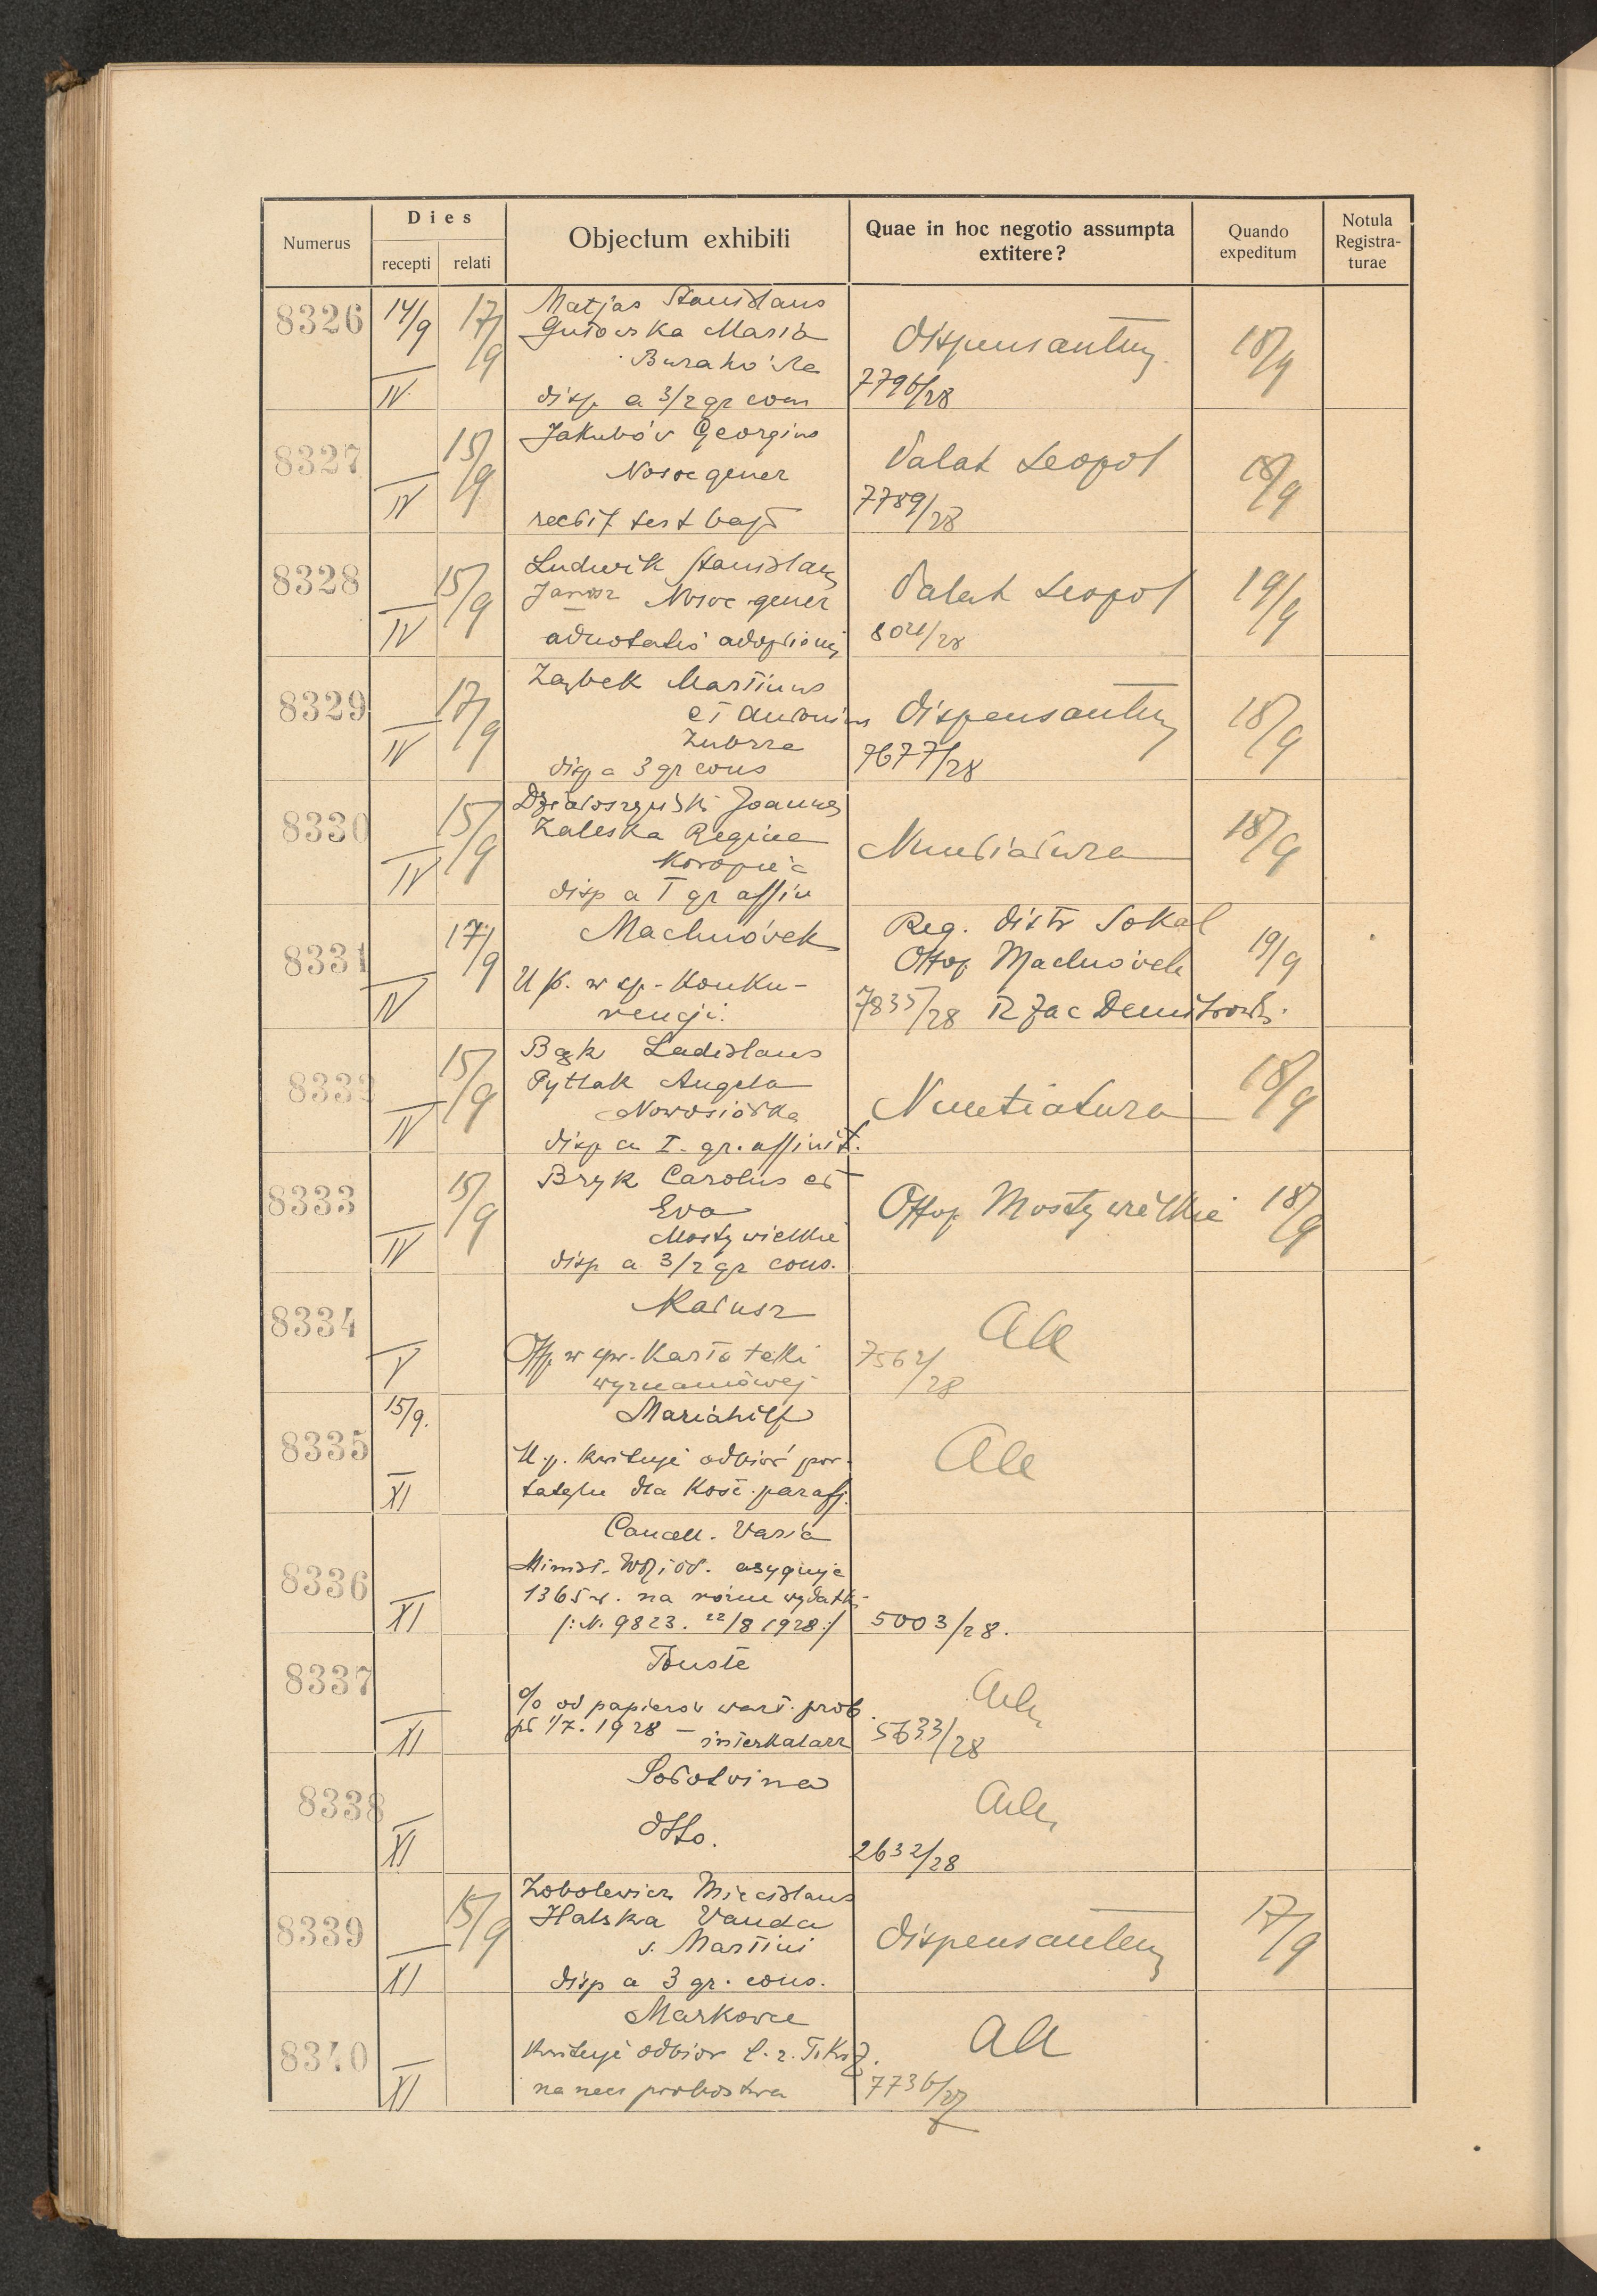 Numerus
Dies
recepti
relati
Objectum exhibiti
Quae in hoc negotio assumpta
extitere?
Quando
expeditum
Notula
Registra-
turae
8326 14/9 17/9 IV
Matjas Stanislaus
Gutowska Maria
disp a 3/2 gr cons
dispensantur
7796/28
18/9
8327 15/9 IV
Jakubów Georgius
Nosoc gener
rectif test bapt
Palat Leopol
7789/28
18/9
8328 15/9 IV
Ludwik Stanislaus
Janosz Nosoc gener
adnotatio adoptionis
Palat Leopol
8021/28
19/9
8329 17/9 IV
Ząbek Martinus
et Antonina
Zubrza
disp a 3 gr cons
dispensantur
7677/28
18/9
8330 15/9 IV
Działoszyński Joannes
Zaleska Regina
Koropiec
disp a I gr affin
Nuntiatura
18/9
8331 17/9 IV
Machnówek
U p. w sp. konku-
rencji.
Reg. distr Sokal
Offop Machnówek
7835/28
19/9
8332 15/9 IV
Bąk Ladislaus
Pytlak Angela
Nowosiółka
disp a I. gr. affinit.
Nuntiatura
18/9
8333 15/9 IV
Bryk Carolus et
Eva
Mosty wielkie
disp a 3/2 gr cons.
Offop Mosty wielkie
18/9
8334 V
Kałusz
Offp w spr. Kartoteki
wyznaniowej
7562/28
8335 15/9. XI
Mariahilf
U. p. kwituje odbiór por-
tatylu dla Kośc. paraf.
8336 XI
Cancell. Varia
Minist. W R i O P. asygnuje
1365 zł. na różne wydatki
/: N. 9823. 22/8 1928 :/
5003/28.
8337 XI
Touste
% od papierów wart. prob.
pt 1/7. 1928 – interkalarz
5633/28
8338 XI
Sołotwina
dtto.
2632/28
8339 15/9 XI
Zobolewicz Miecislaus
Halska Vanda
s. Martini
disp a 3 gr. cons.
dispensantur
17/9
8340 XI
Markowce
kwituje odbiór
na rzecz probostwa
7736/27